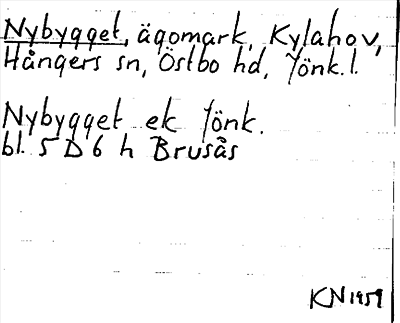 Nybygget, ägomark, Kylahov,
Hångers sn, Östbo hd, Jönk.l.
Nybygget ek Jönk.
bl. 5 D 6 h Brusås
KN 1959